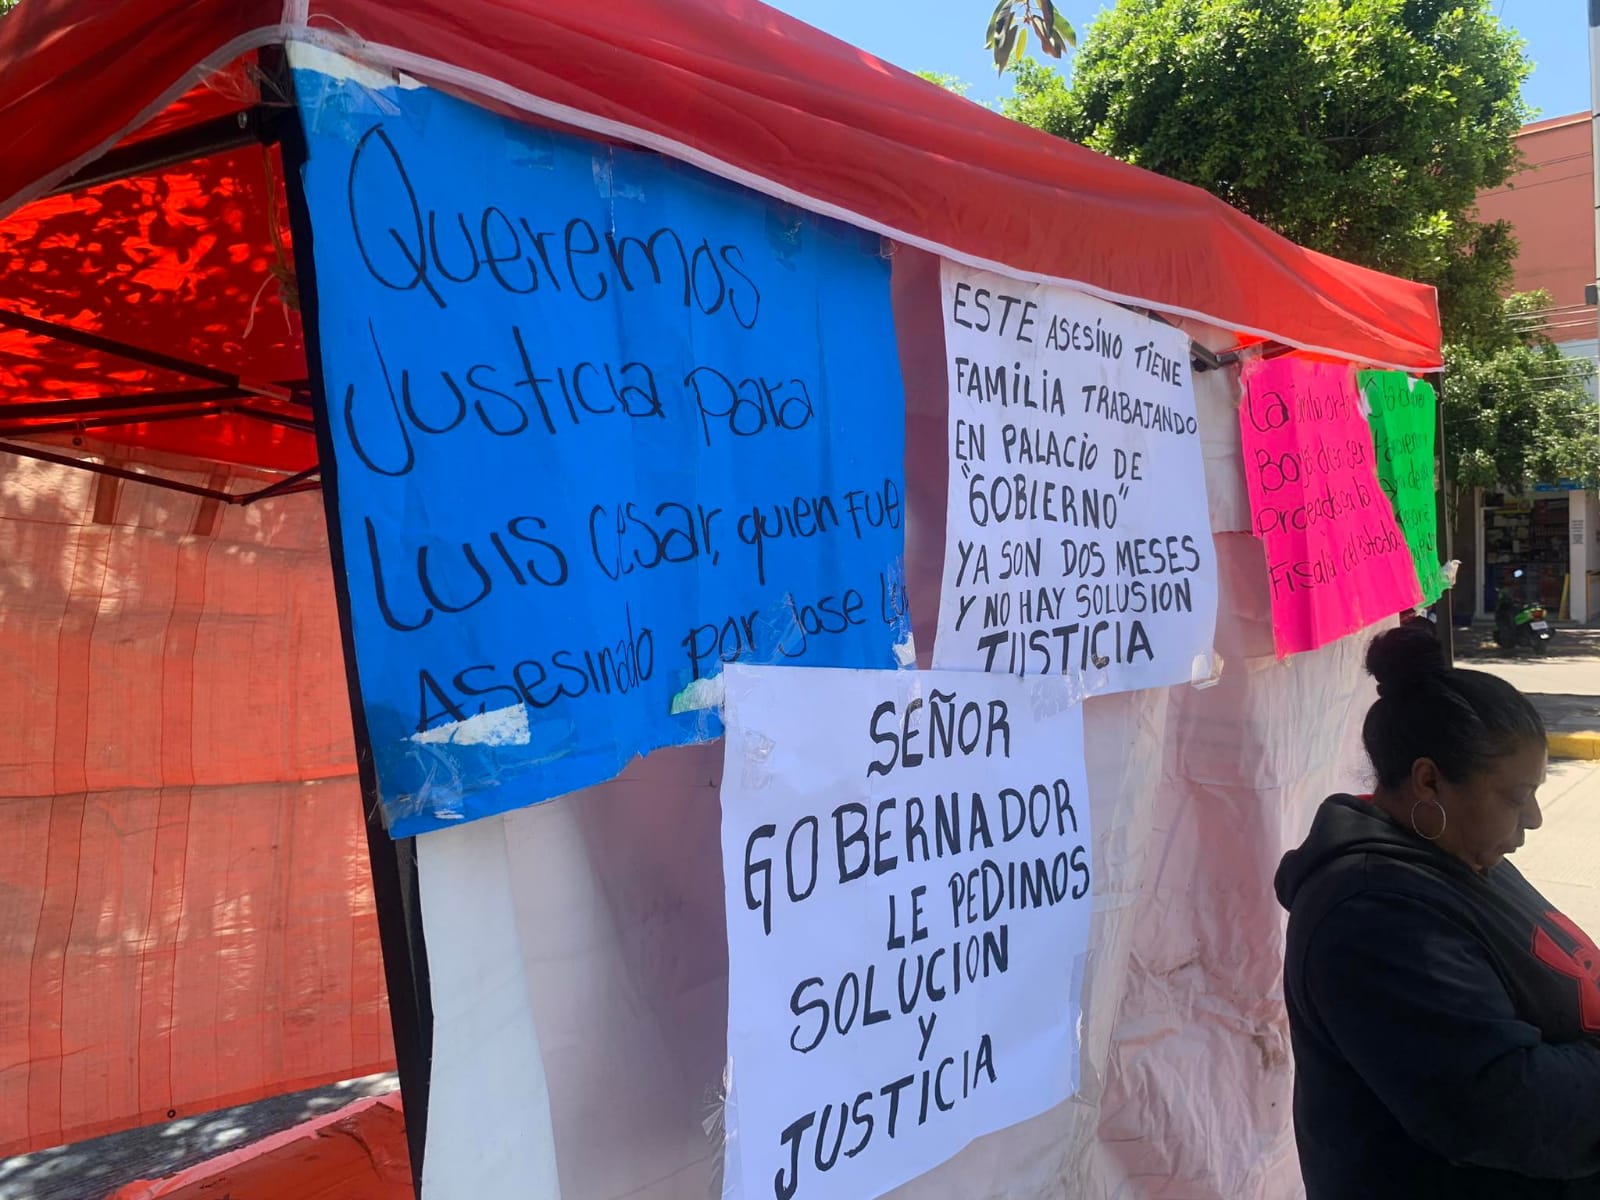 Queremos
Justicia para
LUIS Cesar, quien FUE
Asesinado por Jose
ESTE ASESINO TIENE
FAMILIA TRABAJANDO
EN PALACIO DE
"GOBIERNO"
YA SON DOS MESES
Y NO HAY SOLUSION
JUSTICIA
SEÑOR
GOBERNADOR
LE PEDIMOS
SOLUCION
Y
JUSTICIA
La
ser